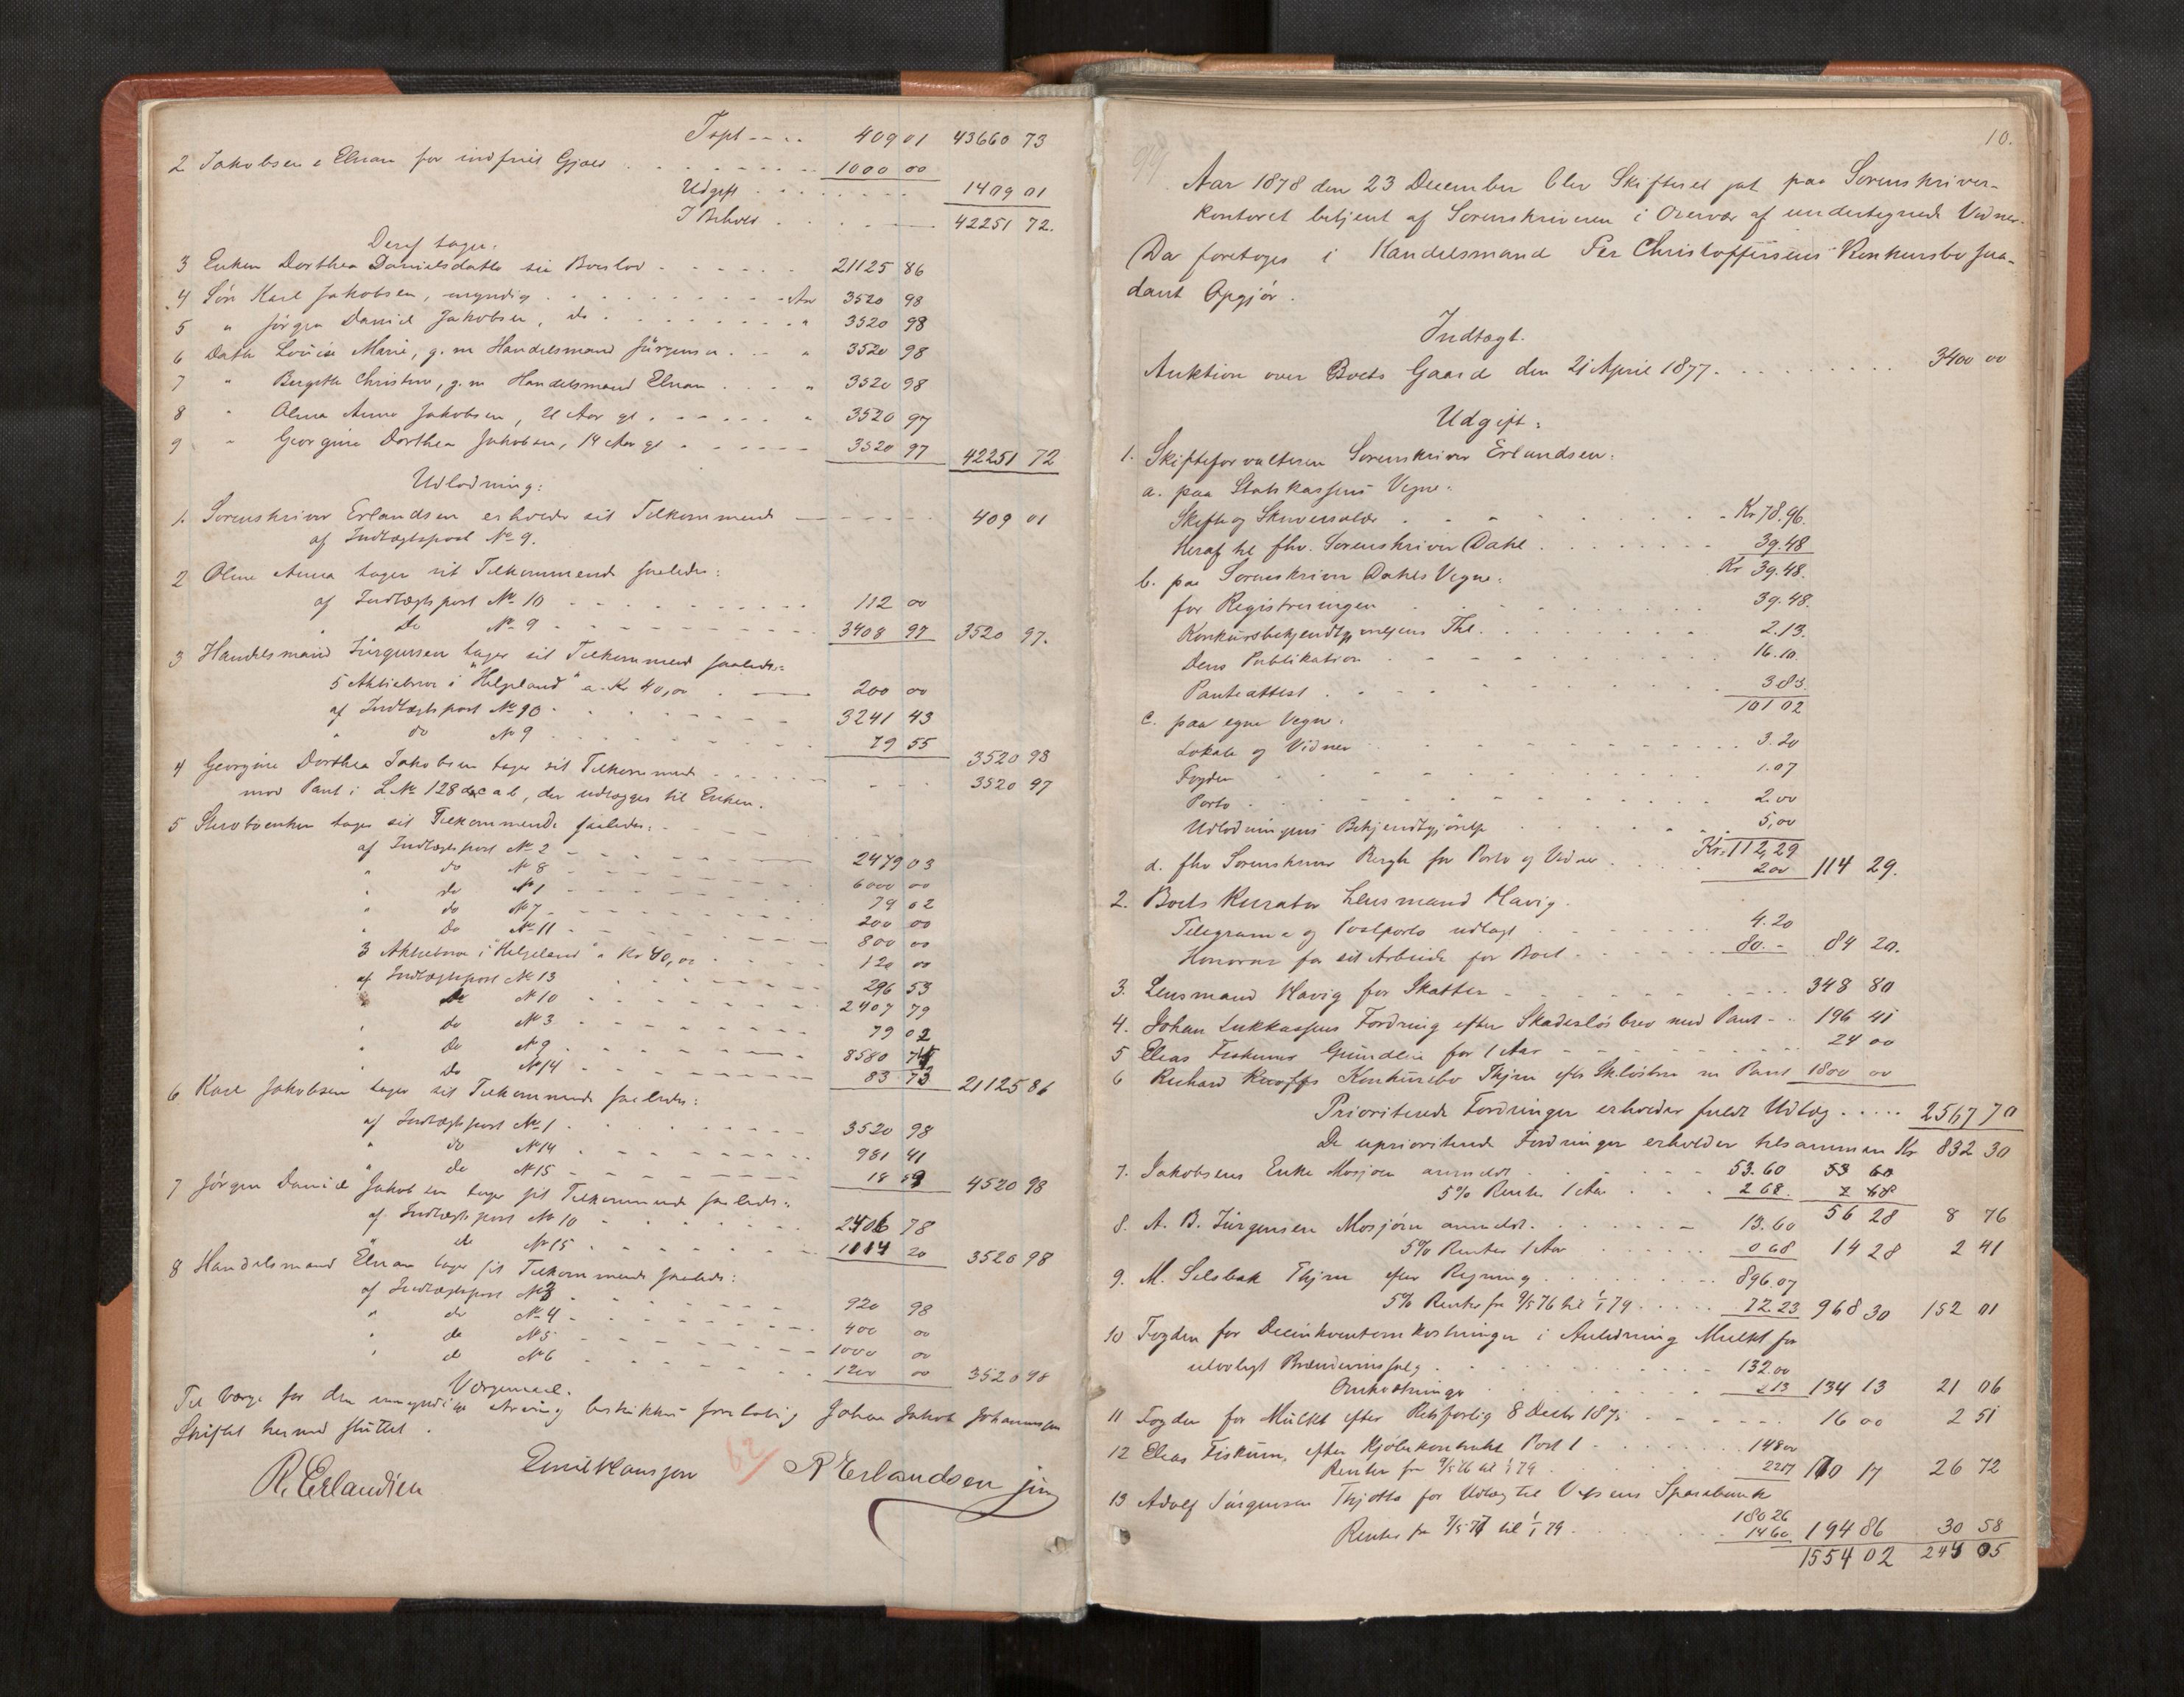 Tspt 409 01 43660 73
2 Jakobsen & Elnan for indfriet Gjæld 1000 00
Udgift 1409 01
I Behold 42251 72.
Deraf tager:
3 Enken Dorthea Danielsdatter sin Boeslod 21125 86
4 Søn Karl Jakobsen, myndig Arv 3520 98
5 " Jørgen Daniel Jakobsen, do " 3520 98
6 Datter Louise Marie, g. m Handelsmand Jürgensen " 3520 98
7 " Bergitte Christine, g. m Handelsmand Elnan " 3520 98
8 " Oline Anna Jakobsen, 21 Aar gl " 3520 97
9 " Georgine Dorthea Jakobsen, 14 Aar gl 3520 97 42251 72
Udlodning:
1. Sorenskriver Erlandsen erholder sit Tilkommende 409 01
af Indtægtspost No 9.
2 Oline Anna tager sit Tilkommende saaledes:
af Indtægtspost No 10 112 00
" Do No 9 3408 97 3520 97.
3 Handelsmand Jürgensen tager sit Tilkommend saaledes:
5 Aktiebreve i "Helgeland" a Kr 40,00 200 00
af Indtægtspost No 10 3241 43
" do No 9 79 55 3520 98
4 Georgine Dorthea Jakobsen tager sit Tilkommende 3520 97
mod Pant i L.No 128 a b, der udlægges til Enken.
5 Stervboenken tager sit Tilkommende saaledes:
af Indtægtspost No 2 2479 03
" do No 8 6000 00
" do No 1 79 02
" do No 7 200 00
" Do No 11 800 00
3 Aktiebreve i "Helgeland" a Kr 40,00 120 00
af Indtægtspost No 13 296 53
" Do No 10 2407 79
" do No 3 79 02
" Do No 9 8580 74
" Do No 14 83 73 21125 86
6. Karl Jakobsen tager sit Tilkommende saaledes:
af Indtægtspost No 1 3520 98
" do No 14 981 41
" do No 15 18 59 4520 98
7 Jørgen Daniel Jakobsen tager sit Tilkommende saaledes:
af Indtægtspost No 10 2406 78
" do No 15 1114 20 3520 98
8 Handelsmand Elnan tager sit Tilkommende saaledes:
af Indtægtspost No 3 920 98
" do No 4 400 00
" do No 5 1000 00
" do No 6 1200 00 3520 98
Værgemaal.
Til Værge for den umyndige Arving beskikkes foreløbig Johan Jakob Johannessen
Skiftet hermed sluttet.
R. Erlandsen Emil Hansen 62 R Erlandsen jun
10.
Aar 1878 den 23 December blev Skifteret sat paa Sorenskriver-
kontoret betjent af Sorenskriveren i Overvær af undertegnede Vidner.
Da foretoges i Handelsmand Per Christoffersens Konkursbo saa-
dant Opgjør.
Indtægt.
Auktion over Boets Gaard den 21 April 1877. 3400 00
Udgift:
1. Skifteforvalteren Sorenskriver Erlandsen:
a. paa Statskassens Vegne:
Skifte og Skriversalær Kr 78.96.
Heraf til fhv. Sorenskriver Dahl 39.48
Kr 39.48.
b. paa Sorenskriver Dahls Vegne:
for Registreringen 39.48.
Konkursbekjendtgjørelsens Thl. 2.13.
Dens Publikation 16.10.
Panteattest 3.83.
101 02
c. paa egne Vegne:
Lokale og Vidner 3.20
Fogden 1.07
Porto 2.00
Udlodningens Bekjendtgjørelse 5,00
Kr. 112,29
d. fhv Sorenskriver Bergh for Porto og Vidner 2.00 114 29.
2. Boets Kurator Lensmand Havig.
Telegram og Postporto udlagt 4.20
Honorar for sit Arbeide for Boet 80.- 84 20.
3. Lensmand Havig for Skatter 348 80
4. Johan Lukkassens Fordring efter Skadesløsbrev med Pant 196 41
5 Elias Fiskums Grundleie for 1 Aar 24 00
6 Richard Knoffs Konkursbo Thjem efter Skløsbrev m Pant 1800 00
Prioriterede Fordringer erholder fuldt Udlæg 2567 70
De uprioriterede Fordringer erholder tilsammen Kr 832 30
7. Jakobsens Enke Mosjøen anmeldt 53.60 53 60
5% Renter 1 Aar 2 68. 2 68
56 28 8 76
8. A. B. Jürgensen Mosjøen anmeldt. 13.60
5% Renter 1 Aar 0 68 14 28 2 41
9. M. Selsbak Thjem efter Regning 896.07
5% Renter fra 9/5 76 til 1/1 79 72.23 968 30 152 01
10 Fogden for Delinkventomkostninger i Anledning Mulkt for
ulovligt Brændevinssalg 132.00
Omkostninger 2 13 134 13 21 06
11 Fogden for Mulkt efter Retsforlig 8 Decbr 187 16 00 2 51
12 Elias Fiskum, efter Kjøbekontrakt Post 1 148 00
Renter fra 9/5 76 til 1/1 79 22 17 170 17 26 72
13 Adolf Jürgensen Thjøtta for Udlæg til Vefsens Sparebank
180 26
Renter fra 7/5 77 til 1/1 79 14 60 194 86 30 58
1554 02 244 05